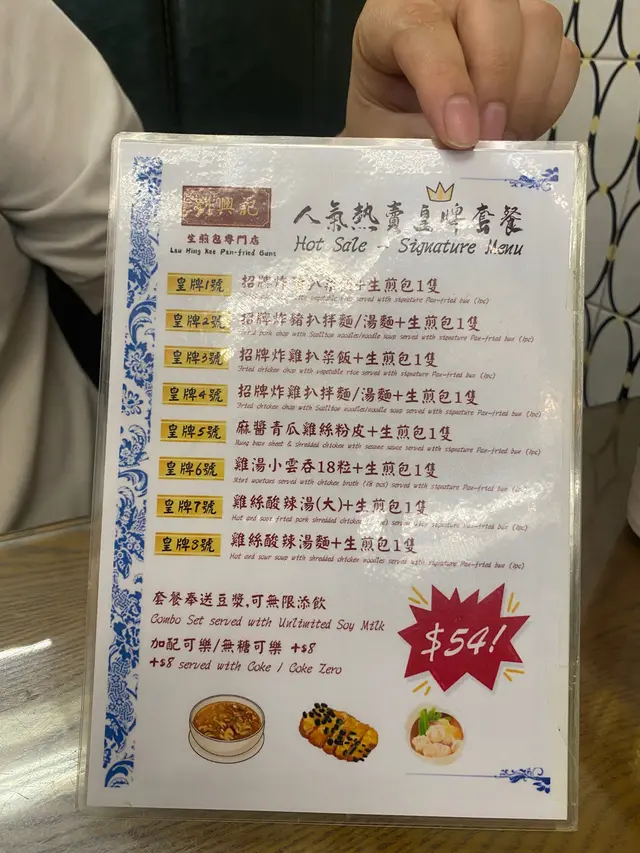 興記
生煎包專門店
Lau Hing Kee Pan-fried Buns
人氣熱賣皇牌套餐
Hot Sale - Signature Menu
皇牌1號 招牌炸豬扒菜飯+生煎包1隻
vegetable rice served with signature Pan-fried bun (1pc)
皇牌2號 招牌炸豬扒拌麵/湯麵+生煎包1隻
Fried pork chop with Scallion noodles/noodle soup served with signature Pan-fried bun (1pc)
皇牌3號 招牌炸雞扒菜飯+生煎包1隻
Fried chicken chop with vegetable rice served with signature Pan-fried bun (1pc)
皇牌4號 招牌炸雞扒拌麵/湯麵+生煎包1隻
Fried chicken chop with Scallion noodles/noodle soup served with signature Pan-fried bun (1pc)
皇牌5號 麻醬青瓜雞絲粉皮+生煎包1隻
Mung bean sheet & shredded chicken with sesame sauce served with signature Pan-fried bun (1pc)
皇牌6號 雞湯小雲吞18粒+生煎包1隻
Mini wontons served with chicken broth (18 pcs) served with signature Pan-fried bun (1pc)
皇牌7號 雞絲酸辣湯(大)+生煎包1隻
Hot and sour fried pork shredded chicken served with signature Pan-fried bun (1pc)
皇牌8號 雞絲酸辣湯麵+生煎包1隻
Hot and sour soup with shredded chicken noodles served with signature Pan-fried bun (1pc)
套餐奉送豆漿,可無限添飲
Combo Set served with Unlimited Soy Milk
加配可樂/無糖可樂 +$8
+$8 served with Coke / Coke Zero
$54!